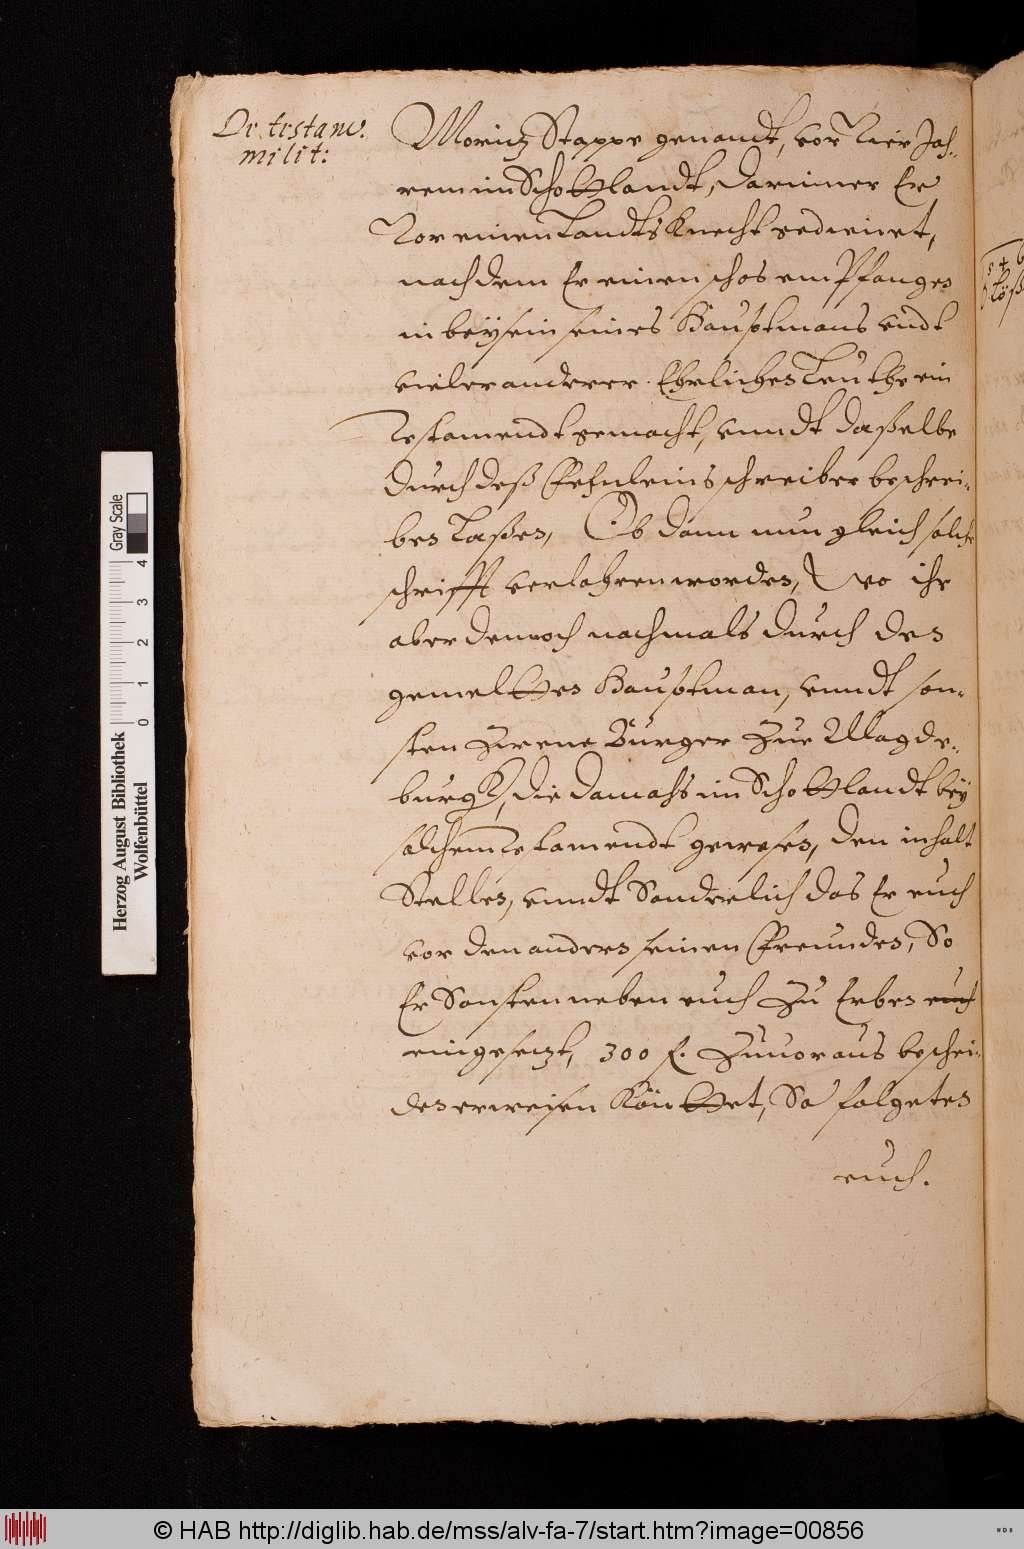 De testam.
milit:
Moritz Stappe genandt, vor Vier Jah-
ren im Schottlandt, darinner Er
Vor einen Landtsknecht gedienet,
nach dem Er einen schos empfangen
in beysein seines Hauptmans undt
vieler anderer Ehrlichen Leuthe ein
Testamendt gemacht, unndt daßelbe
durch deß Fehnleins schreiber beschrei-
ben Laßen, Ob dann nun gleich solche
schrifft verlohren worden, Wo ihr
aber dennoch nachmals durch den
gemeltten Hauptman, unndt son-
sten Zwene Bürger Zue Magde-
burgk, die damahs im Schottlandt bey
solchem Testamendt gewesen, den inhalt
Stellen, unndt Sonderlich das Er euch
vor den andern seinen Freunden, So
Er Sonsten neben euch Zu Erben euch
eingesetzt, 300 f. Zuuoraus beschei-
den erweisen Könttet, So folget es
euch.
Gray Scale
4 3 2 1 0
Herzog August Bibliothek
Wolfenbüttel
© HAB http://diglib.hab.de/mss/alv-fa-7/start.htm?image=00856